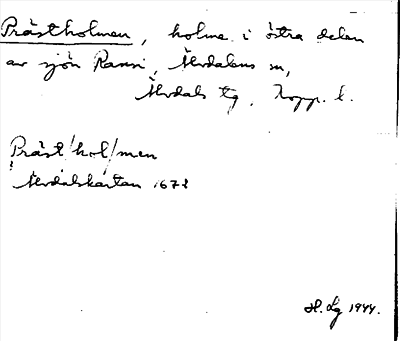 Prästholmen, holme i östra delen
av sjön Ransi, Älvdalens sn,
Älvdals tg, Kopp. l.
Präst/hol/men
Älvdalskartan 1672
H. Lg 1944.